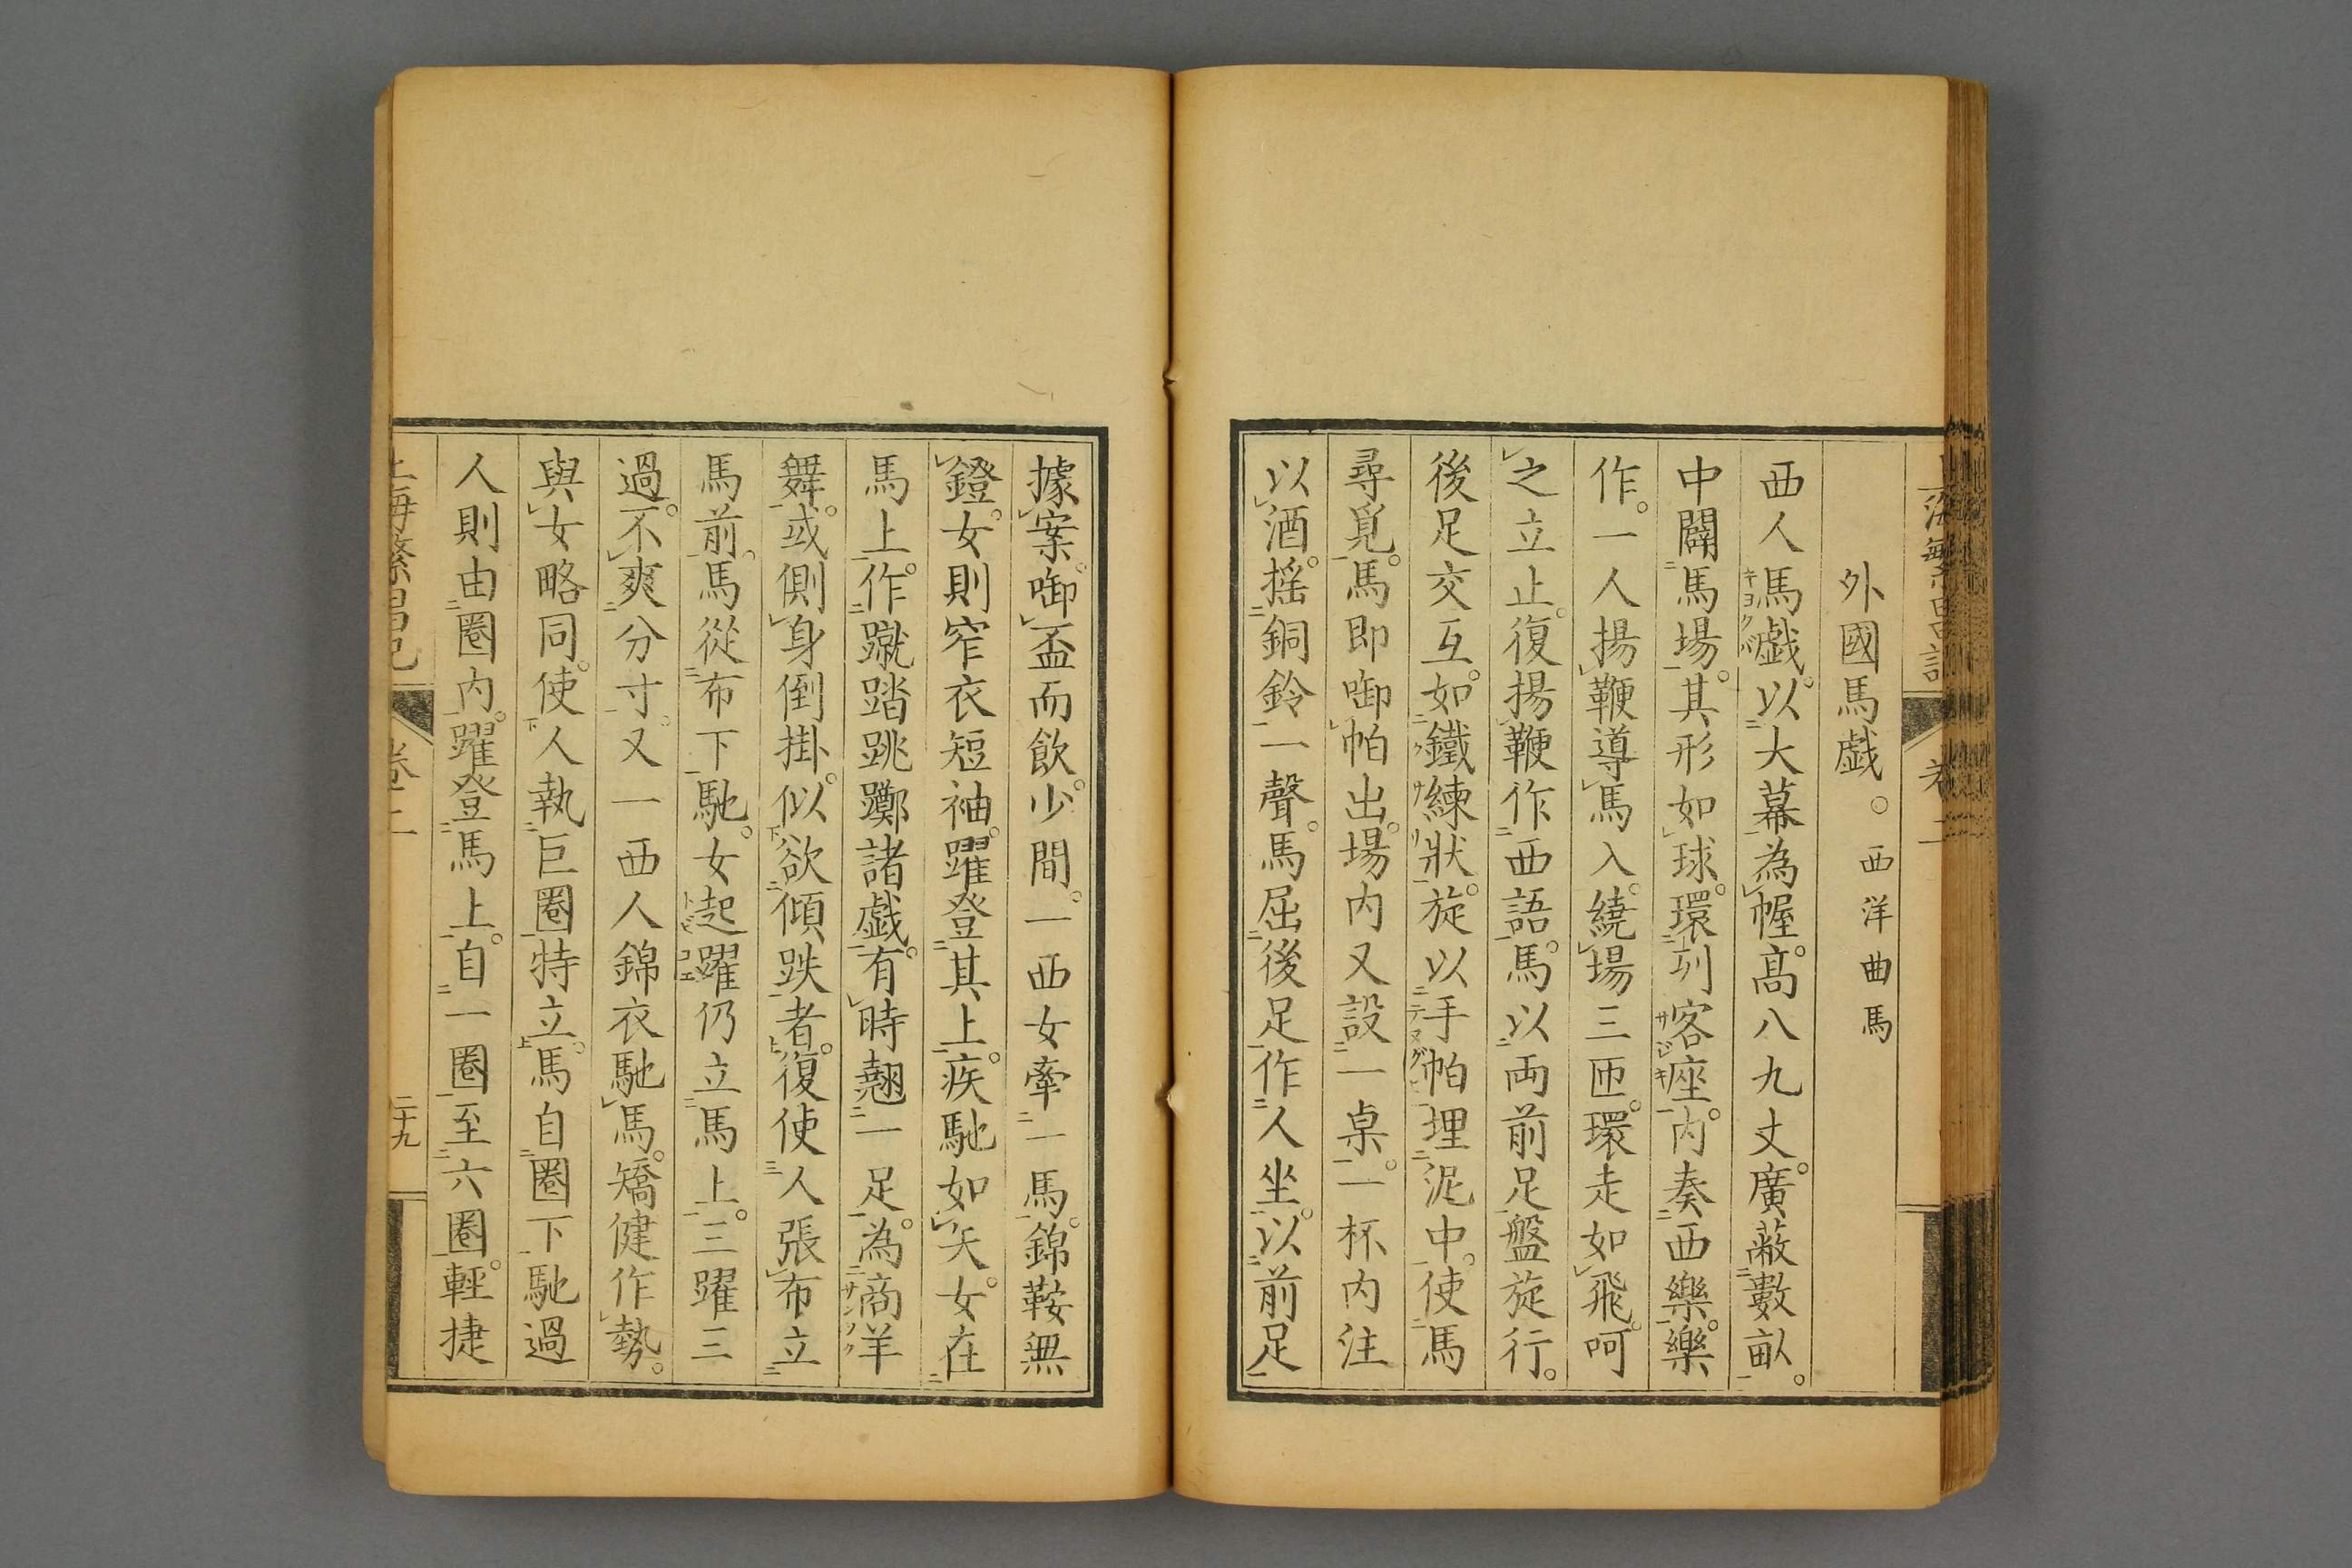 外國馬戯。西洋曲馬
西人馬戯。以大幕為幄。髙八九丈。廣蔽數畝。
キヨクバ
中闢馬場。其形如球。環列客座。内奏西樂。樂
サジキ
作。一人揚鞭導馬入。繞場三匝。環走如飛。呵
之立止。復揚鞭作西語。馬以両前足盤旋行。
後足交互。如鐵練狀。旋以手帕埋泥中。使馬
クサリ
テヌグヒ
尋覓。馬即啣帕出。場内又設一桌。一杯内注
以酒。揺銅鈴一聲。馬屈後足作人坐。以前足
據案。啣盃而飲。少間。一西女牽一馬。錦鞍無
鐙。女則窄衣短袖。躍登其上。疾馳如矢。女在
馬上。作蹴踏跳躑諸戯。有時翹一足。為商羊
舞。或側身倒掛。似欲傾跌者。復使人張布立
馬前。馬從布下馳。女起躍仍立馬上。三躍三
トビコエ
過。不爽分寸。又一西人錦衣馳馬。矯健作勢。
與女略同。使人執巨圏特立。馬自圏下馳過
人則由圏内。躍登馬上。自一圏至六圏。輕捷
上海繁昌記
卷二
二十九